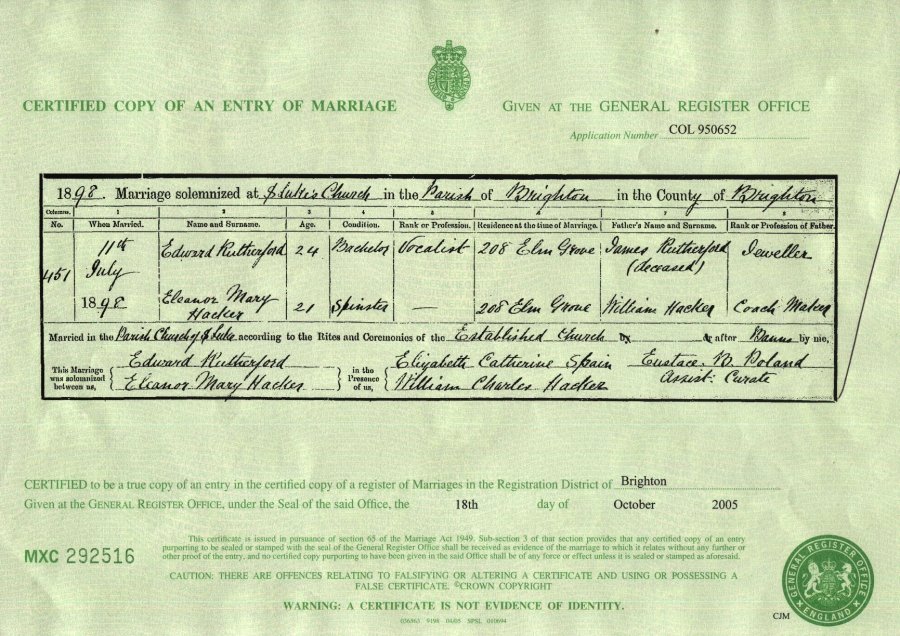 CERTIFIED COPY OF AN ENTRY OF MARRIAGE
GIVEN AT THE GENERAL REGISTER OFFICE
Application Number COL 950652
1898. Marriage solemnized at St Luke's Church in the Parish of Brighton in the County of Brighton
Columns. 1 2 3 4 5 6 7 8
No. When Married. Name and Surname. Age. Condition. Rank or Profession. Residence at the time of Marriage. Father's Name and Surname. Rank or Profession of Father.
451 11th July 1898 Edward Rutherford 24 Bachelor Vocalist 208 Elm Grove James Rutherford (deceased) Jeweller
Eleanor Mary Hacker 21 Spinster — 208 Elm Grove William Hacker Coach Maker
Married in the Parish Church of St Luke according to the Rites and Ceremonies of the Established Church by or after Banns by me,
This Marriage was solemnized between us, Edward Rutherford
Eleanor Mary Hacker
in the Presence of us, Elizabeth Catherine Spain
William Charles Hacker
Eustace B. Boland
Assist: Curate
CERTIFIED to be a true copy of an entry in the certified copy of a register of Marriages in the Registration District of Brighton
Given at the GENERAL REGISTER OFFICE, under the Seal of the said Office, the 18th day of October 2005
MXC 292516
This certificate is issued in pursuance of section 65 of the Marriage Act 1949. Sub-section 3 of that section provides that any certified copy of an entry
purporting to be sealed or stamped with the seal of the General Register Office shall be received as evidence of the marriage to which it relates without any further or
other proof of the entry, and no certified copy purporting to have been given in the said Office shall be of any force or effect unless it is sealed or stamped as aforesaid.
CAUTION: THERE ARE OFFENCES RELATING TO FALSIFYING OR ALTERING A CERTIFICATE AND USING OR POSSESSING A
FALSE CERTIFICATE. ©CROWN COPYRIGHT
WARNING: A CERTIFICATE IS NOT EVIDENCE OF IDENTITY.
036363 9198 04/05 SPSL 010694
CJM
GENERAL REGISTER OFFICE
ENGLAND